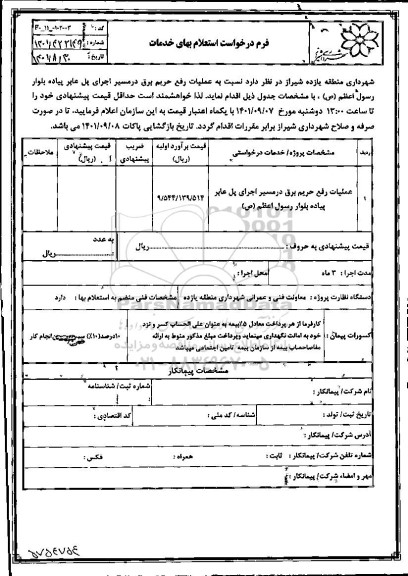 فرم درخواست استعلام بهای خدمات
کد :
شماره :
تاریخ :
شهرداری منطقه یازده شیراز در نظر دارد نسبت به عملیات رفع حریم برق درمسیر اجرای پل عابر پیاده بلوار
رسول اعظم (ص) ، با مشخصات جدول ذیل اقدام نماید. لذا خواهشمند است حداقل قیمت پیشنهادی خود را
تا ساعت ۱۳:۰۰ دوشنبه مورخ ۱۴۰۱/۰۹/۰۷ با یکماه اعتبار قیمت به این سازمان اعلام فرمایید. تا در صورت
صرفه و صلاح شهرداری شیراز برابر مقررات اقدام گردد. تاریخ بازگشایی پاکات ۱۴۰۱/۰۹/۰۸ می باشد.
ردیف مشخصات پروژه/ خدمات درخواستی قیمت برآورد اولیه (ریال) ضریب پیشنهادی قیمت پیشنهادی (ریال) ملاحظات
۱ عملیات رفع حریم برق درمسیر اجرای پل عابر پیاده بلوار رسول اعظم (ص) ۹/۵۴۴/۱۳۹/۵۱۴
قیمت پیشنهادی به حروف : ...ریال به عدد : ...ریال
مدت اجرا : ۳ ماه محل اجرا :
دستگاه نظارت پروژه : معاونت فنی و عمرانی شهرداری منطقه یازده مشخصات فنی منضم به استعلام بها : دارد
کسورات پیمان : کارفرما از هر پرداخت معادل ۵٪بیمه به عنوان علی الحساب کسر و نزد
خود به امانت نگهداری مینماید وپرداخت مبلغ مذکور منوط به ارائه
مفاصاحساب بیمه از سازمان بیمه تامین اجتماعی میباشد
۱۰درصد(۱۰٪) انجام کار
مشخصات پیمانکار
نام شرکت/ پیمانکار : شماره ثبت/ شناسنامه :
تاریخ ثبت/ تولد : شناسه/ کد ملی : کد اقتصادی :
آدرس شرکت/ پیمانکار :
شماره تلفن شرکت/ پیمانکار : ثابت : همراه : فکس :
مهر و امضاء شرکت/ پیمانکار :